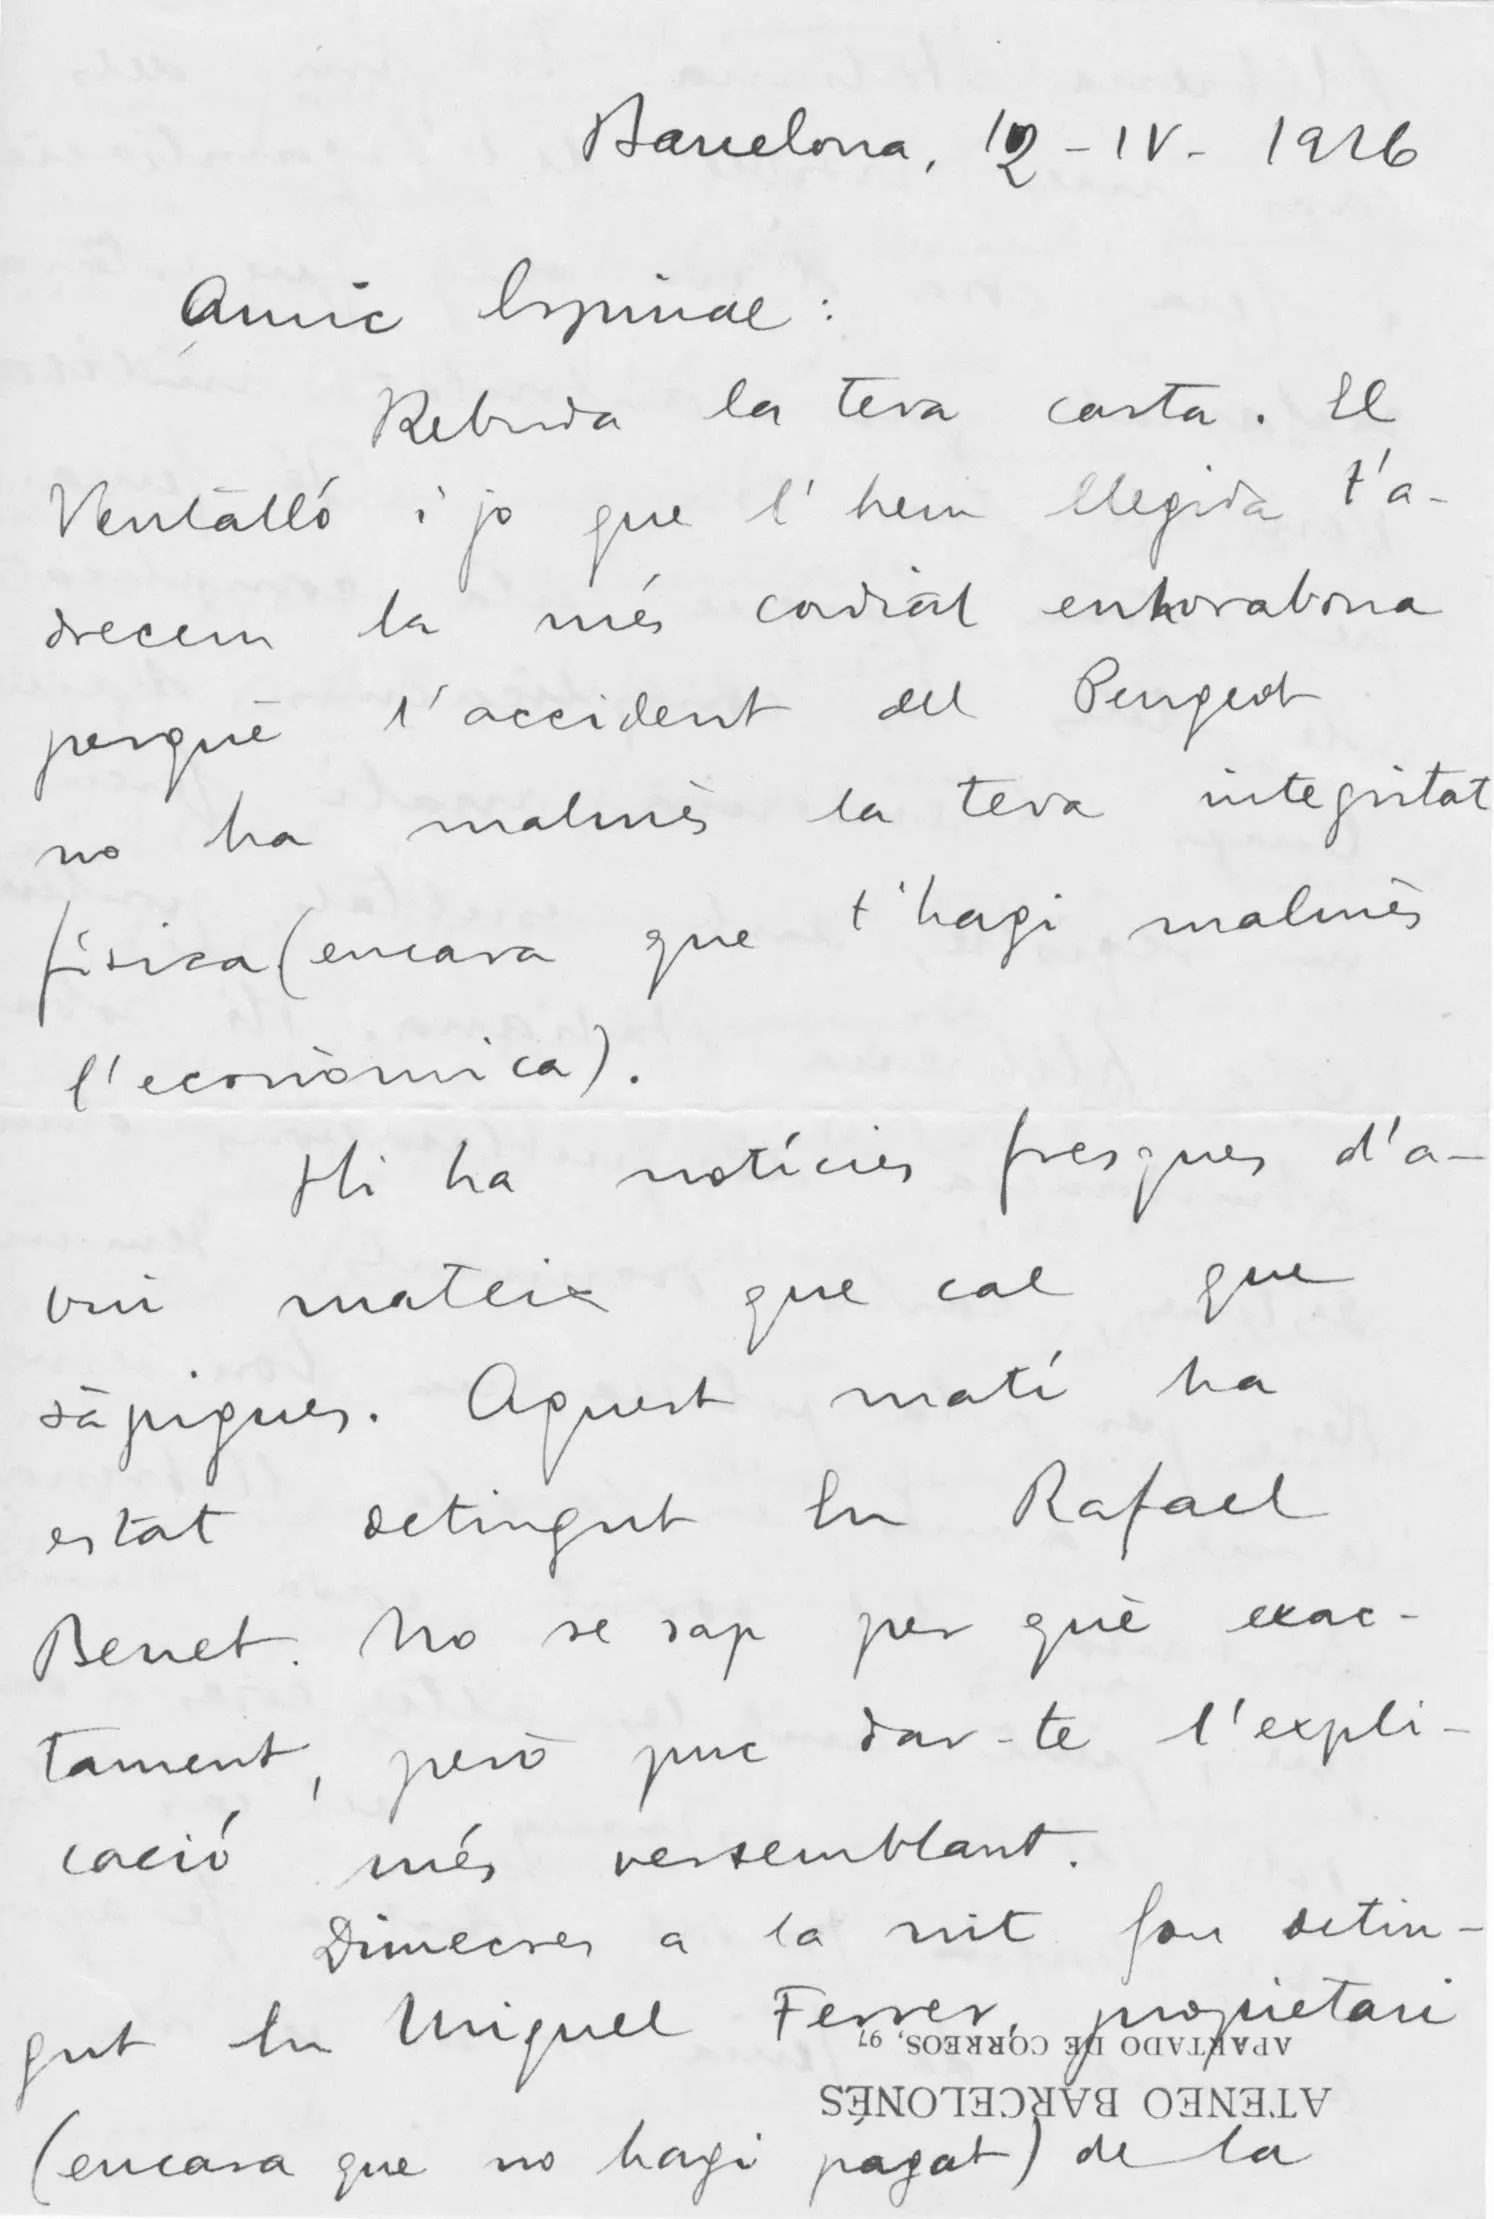 Barcelona, 12-IV-1926
Amic Espinal:
Rebuda la teva carta. El
Ventalló i jo que l'hem llegida t'a-
drecem la més cordial enhorabona
perquè l'accident del Peugeot
no ha malmès la teva integritat
física (encara que t'hagi malmès
l'econòmica).
Hi ha notícies fresques d'a-
vui mateix que cal que
sàpigues. Aquest matí ha
estat detingut En Rafael
Benet. No se sap per què exac-
tament, però puc dar-te l'expli-
cació més versemblant.
Dimecres a la nit fou detin-
gut En Miquel Ferrer, propietari
(encara que no hagi pagat) de la
ATENEO BARCELONÉS
APARTADO DE CORREOS, 97